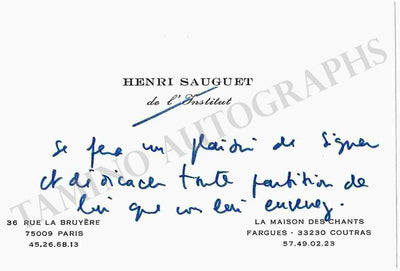 HENRI SAUGUET
de l'Institut
se fera un plaisir de signer
et dédicacer toute partition de
lui que vous lui enverrez.
36 RUE LA BRUYÈRE
75009 PARIS
45.26.68.13
LA MAISON DES CHANTS
FARGUES - 33230 COUTRAS
57.49.02.23
TAMINO AUTOGRAPHS